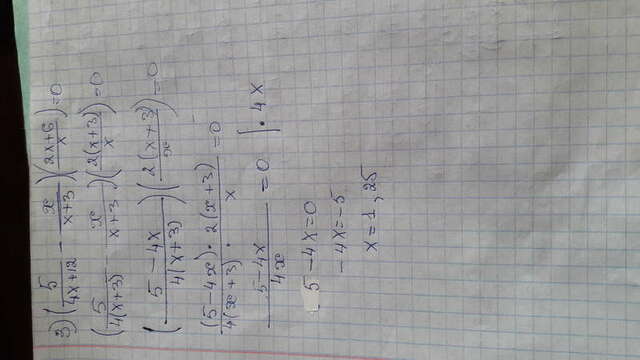 3) (5/(4x+12) - x/(x+3)) ((2x+6)/x) = 0
(5/(4(x+3)) - x/(x+3)) (2(x+3)/x) = 0
((5-4x)/(4(x+3))) (2(x+3)/x) = 0
((5-4x) · 2(x+3))/(4(x+3) · x) = 0
(5-4x)/(4x) = 0 | · 4x
5-4x=0
-4x=-5
x=1,25